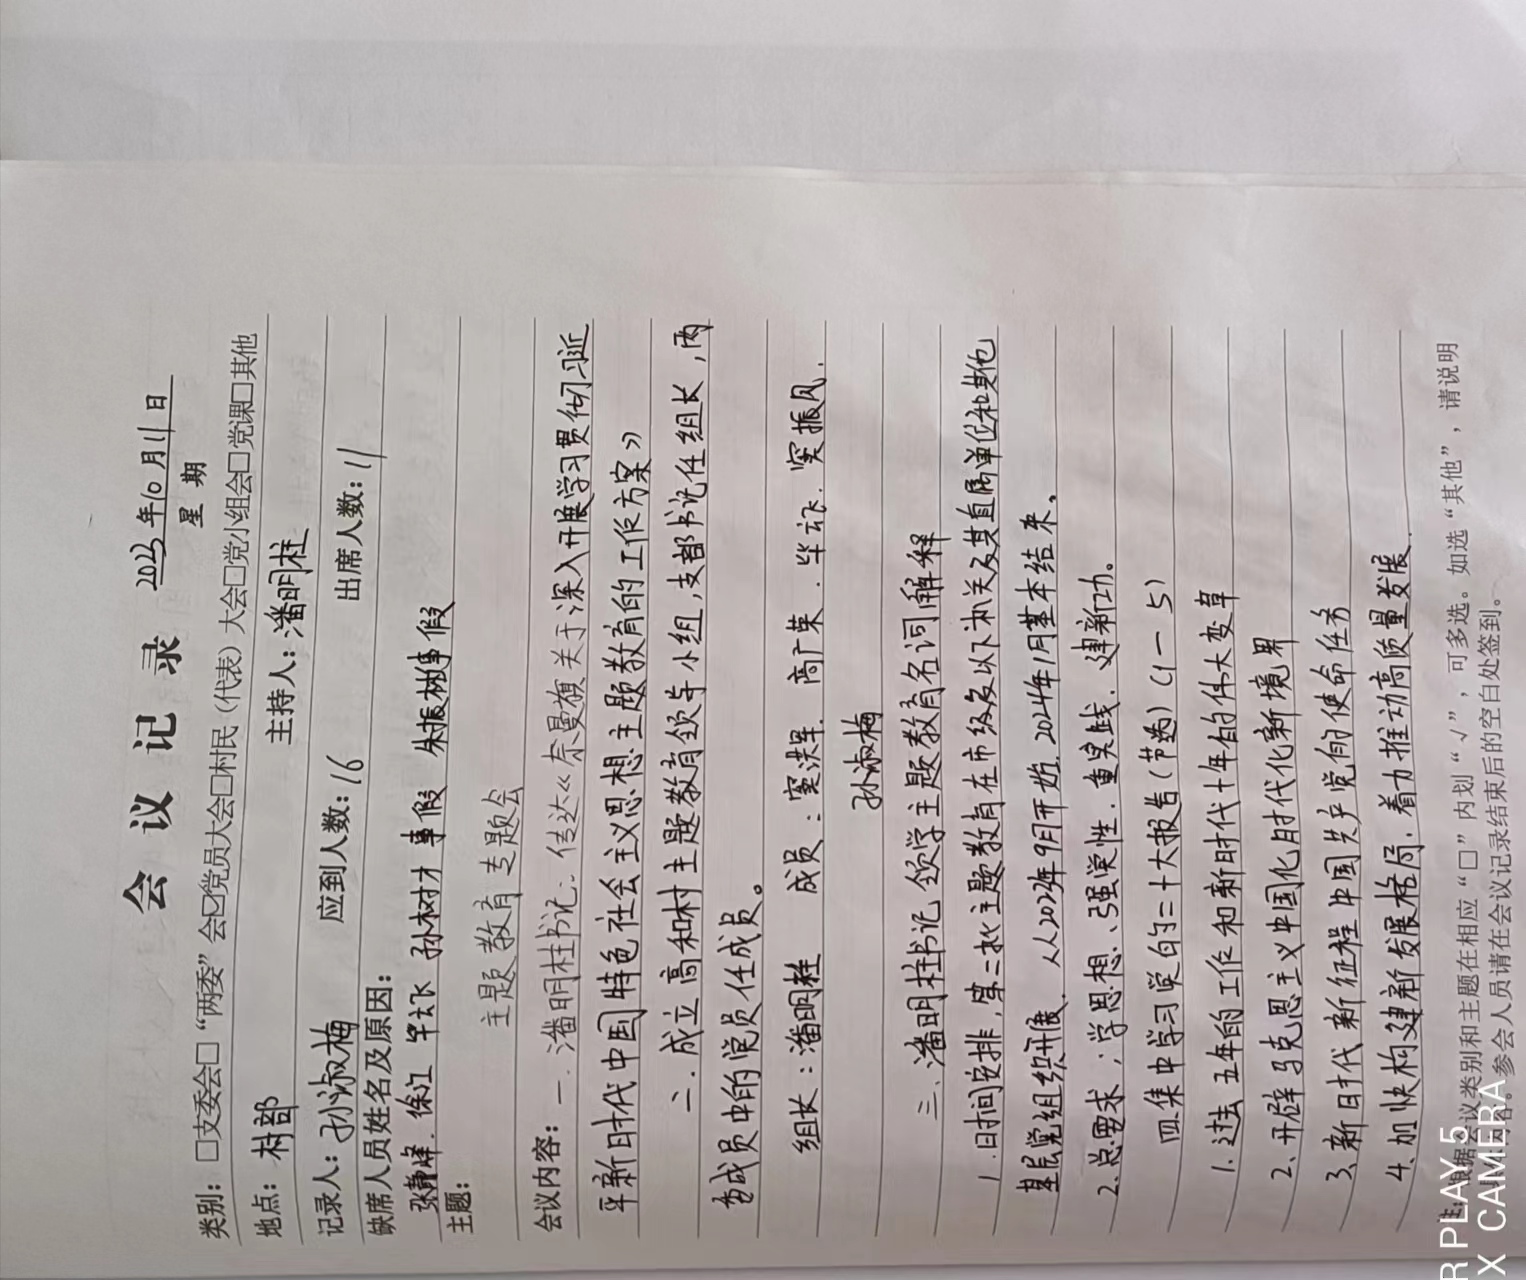 会议记录 2023年10月11日
星期
类别：□支委会□“两委”会☑党员大会□村民（代表）大会□党小组会□党课□其他
地点：村部 主持人：潘明柱
记录人：孙淑梅 应到人数：16 出席人数：11
缺席人员姓名及原因：
张静峰．徐江 孙树才 事假 朱振树事假
主题：
主题教育专题会
会议内容：一．潘明柱书记：传达《奈曼旗关于深入开展学习贯彻习近
平新时代中国特色社会主义思想主题教育的工作方案》
二．成立高和村主题教育领导小组，支部书记任组长，两
委成员中的党员任成员。
组长：潘明柱 成员：窦洪军．高广荣．毕云飞．窦振风．
孙淑梅
三、潘明柱书记领学主题教育名词解释
1．时间安排，第二批主题教育在市级及以下机关及其直属单位和其他
基层党组织开展．从2023年9月开始，2024年1月基本结束。
2．总要求：学思想、强党性．重实践．建新功。
四．集中学习党的二十大报告（节选）（1－5）
1．过去五年的工作和新时代十年的伟大变革
2、开辟马克思主义中国化时代化新境界
3、新时代新征程中国共产党的使命任务
4、加快构建新发展格局．着力推动高质量发展．
注：根据会议类别和主题在相应“□”内划“√”，可多选。如选“其他”，请说明
参会人员请在会议记录结束后的空白处签到。
R PLAY 5
X CAMERA